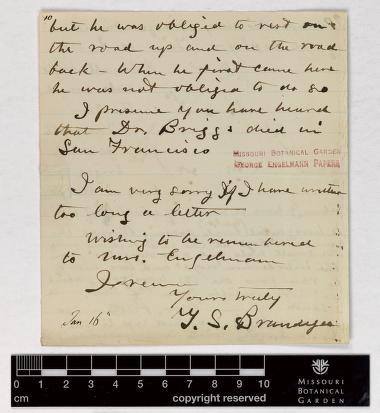 10
but he was obliged to rest on
the road up and on the road
back – When he first came here
he was not obliged to do so
I presume you have heard
that Dr Briggs died in
San Francisco
MISSOURI BOTANICAL GARDEN
GEORGE ENGELMANN PAPERS
I am very sorry if I have written
too long a letter
Wishing to be remembered
to Mrs. Engelmann
I remain
Yours truly
T. S. Brandegee
Jan 16"
0 1 2 3 4 5 6 7 8 9 10
cm
copyright reserved
MISSOURI
BOTANICAL
GARDEN